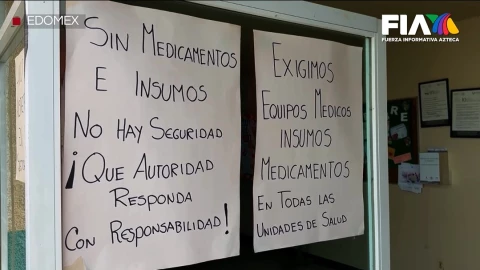 EDOMEX
FIA
FUERZA INFORMATIVA AZTECA
SIN MEDICAMENTOS
E INSUMOS
NO HAY SEGURIDAD
¡QUE AUTORIDAD
RESPONDA
CON RESPONSABILIDAD!
EXIGIMOS
EQUIPOS MEDICOS
INSUMOS
MEDICAMENTOS
EN TODAS LAS
UNIDADES DE SALUD